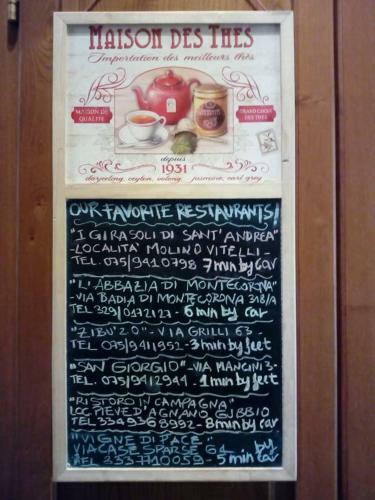 MAISON DES THES
Importation des meilleurs thés
MAISON DE
QUALITÉ
GRAND CHOIX
DES THÉS
depuis
1931
darjeeling, ceylon, oolong, jasmine, earl grey
OUR FAVORITE RESTAURANTS!
"I GIRASOLI DI SANT'ANDREA"
-LOCALITÀ MOLINO VITELLI-
TEL. 075/9410798 7 min by car
"L'ABBAZIA DI MONTECORONA"
-VIA BADIA DI MONTECORONA 318/A
TEL 329/0172127 - 6 min by car
"ZIBU' 2.0" - VIA GRILLI 63 -
TEL. 075/9411952 - 3 min by feet
"SAN GIORGIO" - VIA MANCINI 3 -
TEL. 075/9412944 - 1 min by feet
"RISTORO IN CAMPAGNA"
LOC. PIEVE D'AGNANO GUBBIO
TEL 3349368992 - 8 min by car
"VIGNE DI PACE"
VIA CASE SPARSE 61 by
TEL 3537710059 - 5 min car